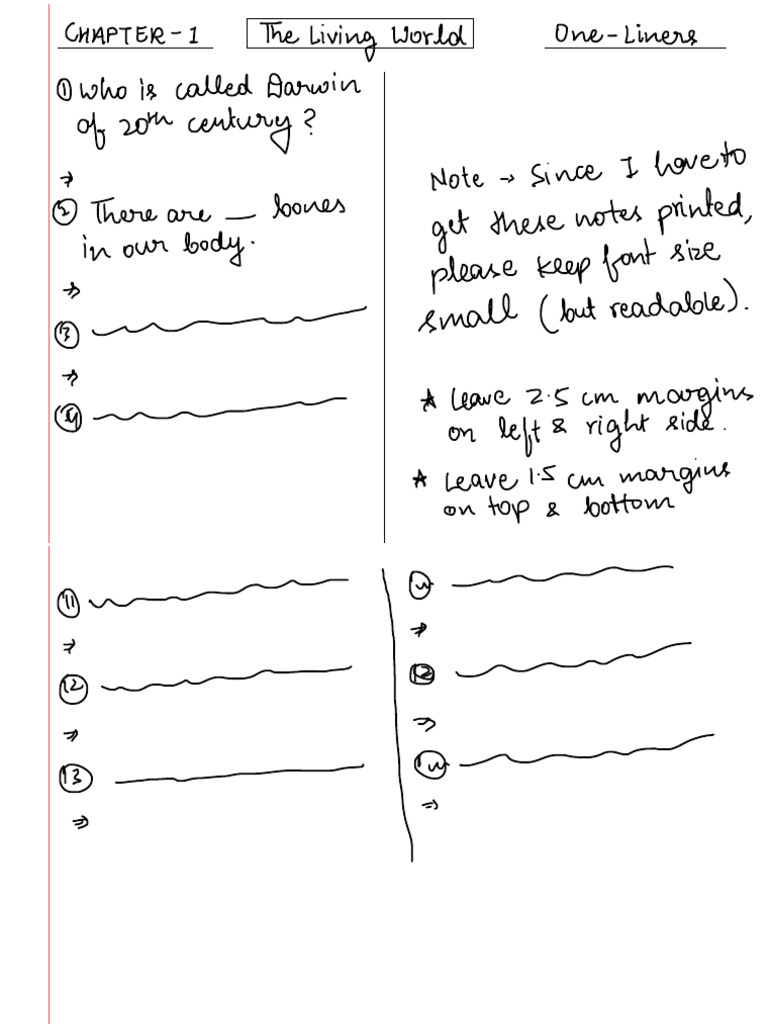 CHAPTER-1 The Living World One-Liners
① Who is called Darwin
of 20th century?
⇒
② There are __ bones
in our body.
⇒
③
⇒
④
Note → Since I have to
get these notes printed,
please keep font size
small (but readable).
★ Leave 2.5 cm margins
on left & right side.
★ Leave 1.5 cm margins
on top & bottom
⑪
⇒
⑫
⇒
⑬
⇒
⇒
⇒
⇒